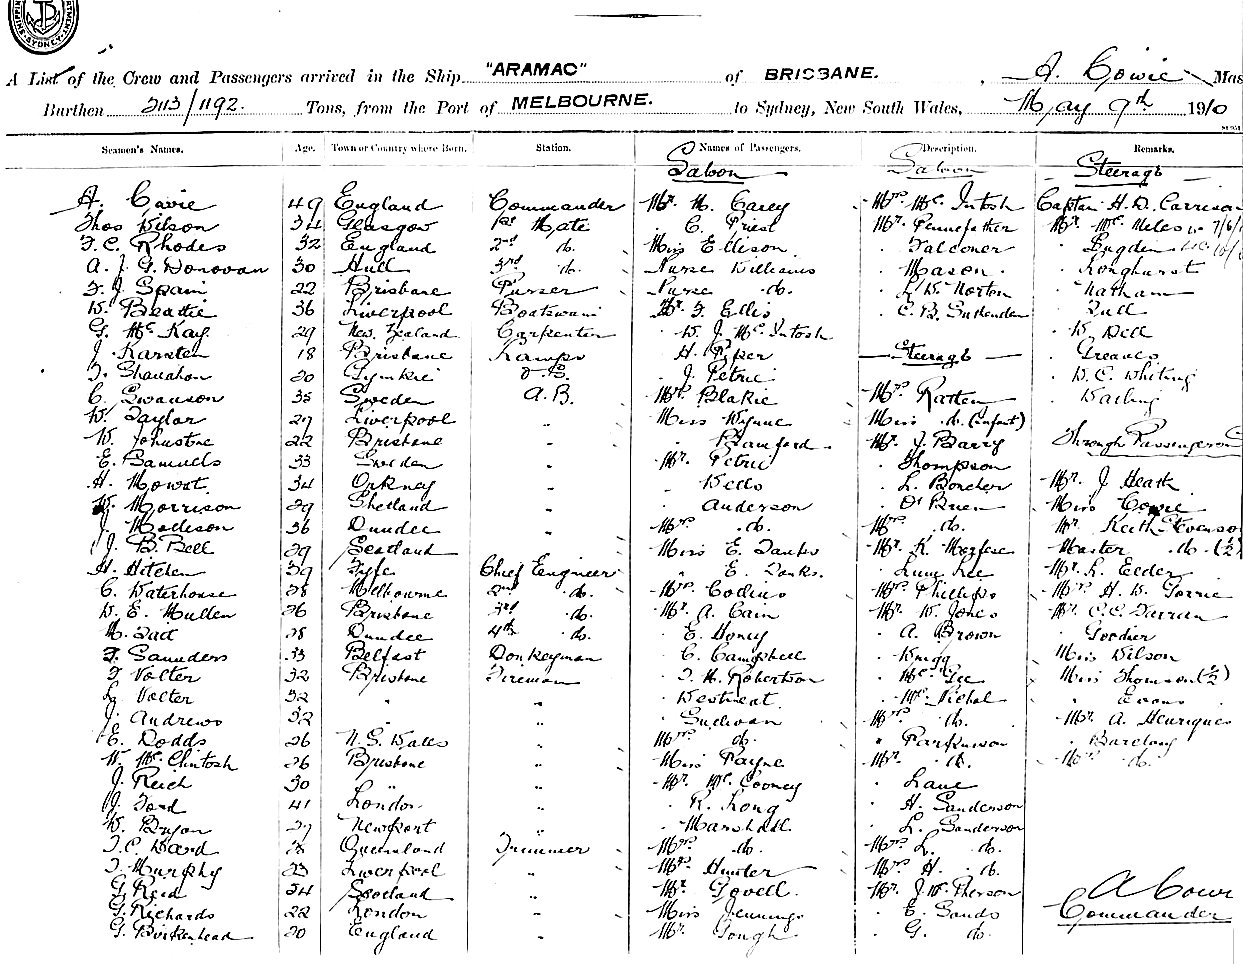 SHIPPING SYDNEY
A List of the Crew and Passengers arrived in the Ship "ARAMAC" of BRISBANE. , A. Cowie Mas
Burthen 2113/1192. Tons, from the Port of MELBOURNE. to Sydney, New South Wales, May 9th 1910
Seamen's Names. Age. Town or Country where Born. Station. Names of Passengers. Description. Remarks.
Saloon Saloon Steerage
A. Cowie 49 England Commander Mr. M. Carey Mrs McIntosh Captain H. D. Carrison
Thos Wilson 34 Glasgow 1st Mate " C. Priest Mr. Pennefather Mr. McMeles
F. C. Rhodes 32 England 2nd do. Miss Ellison " Falconer " Lugden
A. J. G. Donovan 30 Hull 3rd do. Nurse Williams " Mason " Longhurst
F. J. Spain 22 Brisbane Purser Nurse do. " L. W. Norton " Natham
W. Beattie 36 Liverpool Boatswain Mr. F. Ellis " C. B. "
G. McKay 29 New Zealand Carpenter " W. J. McIntosh " W. Bell
J. Karsten 18 Brisbane Lamps " H. Pyper Steerage " Greaves
T. Shanahan 20 Gympie O. S. " J. Petrie " W. C. Whiting
C. Swanson 35 Sweden A. B. Mrs. Blakie Mrs Ratten
W. Taylor 29 Liverpool " Miss Wynne Miss do. (Infant)
W. Johnstone 22 Brisbane " " Bamford Mr. J. Barry Through Passengers
E. Samuels 33 Sweden " Mr. Petrie " Thompson
H. Mowat 34 Orkney " " Wells " L. Mr. J. Heath
W. Morrison 29 Shetland " " Anderson " O'Brien Miss Cowie
J. Mollison 36 Dundee " Mrs. do. Mrs. do. Mr. Keith Stevenso
J. B. Bell 29 Scotland " Miss E. Danks Mr. K. Master do. (½)
H. Hitchen 39 Fyfe Chief Engineer " E. Danks. " Lum Lee Mr. L. Elder
C. Waterhouse 28 Melbourne 2nd do. Mrs. Codins Mrs Phillips Mrs H. W. Gorrie
W. E. Mullen 26 Brisbane 3rd do. Mr. A. Cain Mr. W. Jones Mr. C. C.
M. 28 Dundee 4th do. " E. Honey " A. Brown "
F. Saunders 33 Belfast Donkeyman " C. Campbell " Wragg Miss Wilson
F. Volter 32 Brisbane Fireman " J. H. Robertson " McGee Miss Thomson (½)
L. Volter 32 " " " Westneat " McNichol " Evans
J. Andrews 32 " " " Sullivan Mrs. do. Mr. A. Henriques
E. Dodds 26 N. S. Wales " Mrs. do. " Parkinson " Barclay
W. McClintosh 26 Brisbane " Miss Payne Mrs. do. Mrs do.
J. Reich 30 " " Mr. McCooney " Lane
J. Ford 41 London " " R. Long " H. Sanderson
W. Bryon 37 Newport " " Marshall " L. Sanderson
T. C. Ward 28 Queensland Trimmer Mrs. do. Mrs. L. do.
T. Murphy 23 Liverpool " Mrs. Hunter Mrs. H. do.
G. Reid 34 Scotland " Mr. Dovell. Mr. J. McPherson A Cowi
G. Richards 22 London " Miss Jennings " E. Sands Commander
G. Birkenhead 20 England " Mr. Gough " G. do.